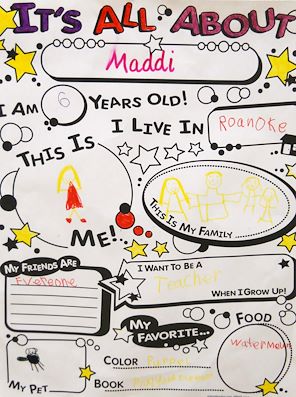 IT'S ALL ABOUT
Maddi
I AM 6 YEARS OLD!
I LIVE IN Roanoke
THIS IS
ME!
THIS IS MY FAMILY........
MY FRIENDS ARE
Everyone
I WANT TO BE A
Teacher
WHEN I GROW UP!
MY FAVORITE...
COLOR
BOOK
FOOD
MY PET